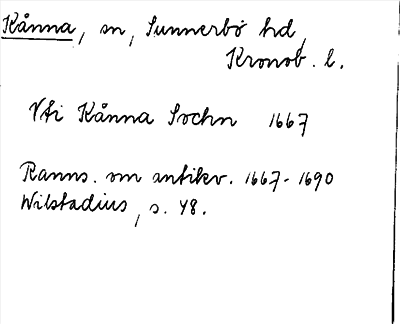 Kånna, sn, Sunnerbo hd,
Kronob. l.
Vti Kånna Sochn 1667
Ranns. om antikv. 1667-1690
Wilstadius, s. 48.